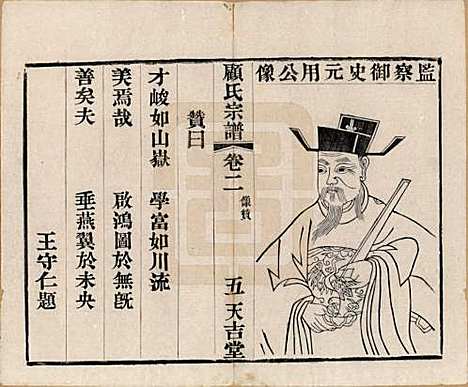 監察御史元用公像
顧氏宗譜 卷二 像贊 五 天吉堂
贊曰
才峻如山嶽 學富如川流
美焉哉 啟鴻圖於無旣
善矣夫 垂燕翼於未央
王守仁題